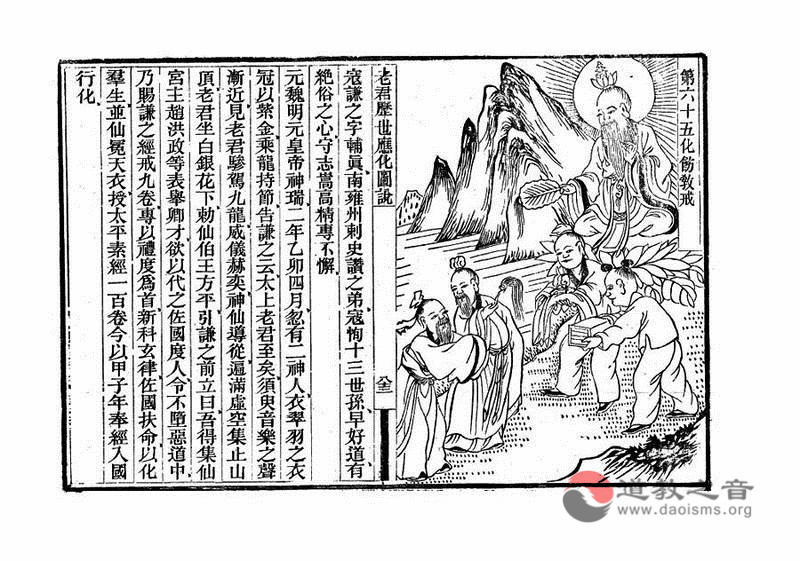 第六十五化飭敎戒
老君歷世應化圖說
寇謙之字輔眞南雍州刺史讚之弟寇恂十三世孫早好道有
絶俗之心守志嵩高精專不懈
元魏明元皇帝神瑞二年乙卯四月忽有二神人衣翠羽之衣
冠以紫金乘龍持節告謙之云太上老君至矣須臾音樂之聲
漸近見老君驂駕九龍威儀赫奕神仙導從遍滿虛空集止山
頂老君坐白銀花下勅仙伯王方平引謙之前立曰吾得集仙
宮主趙洪政等表舉卿才欲以代之佐國度人令不墮惡道中
乃賜謙之經戒九卷專以禮度爲首新科玄律佐國扶命以化
羣生並仙冕天衣授太平素經一百卷今以甲子年奉經入國
行化
道教之音
www.daoisms.org